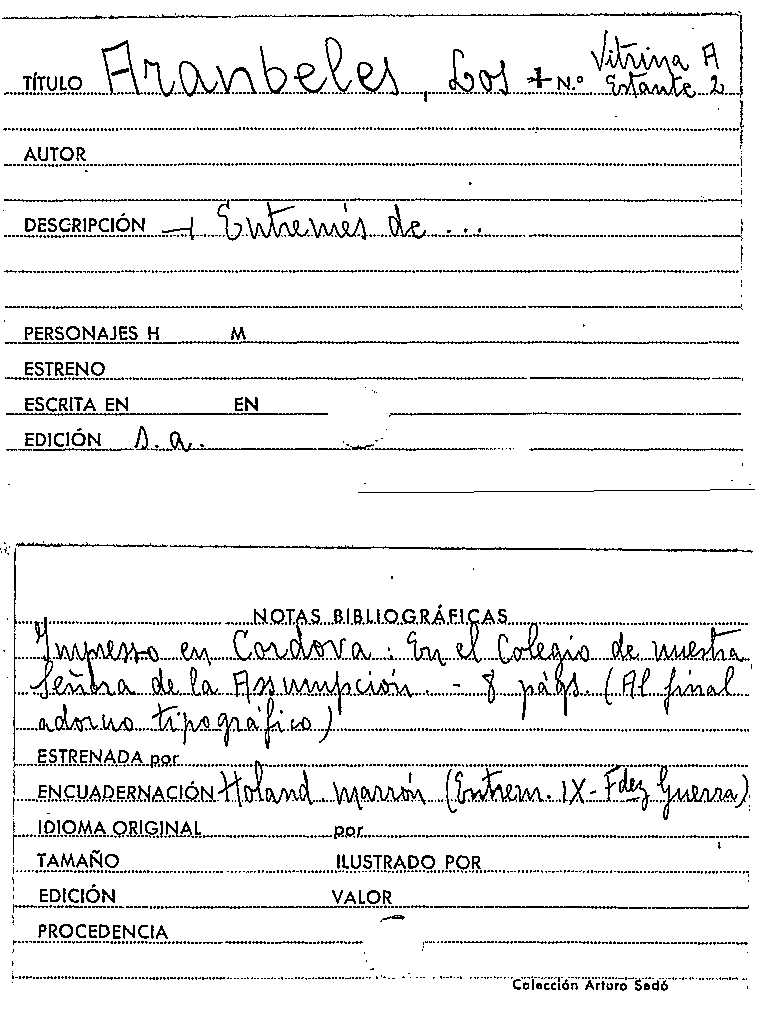 TÍTULO Aranbeles, Los + N.º Vitrina A
Estante 2
AUTOR
DESCRIPCIÓN — Entremés de ...
PERSONAJES H M
ESTRENO
ESCRITA EN EN
EDICIÓN s. a.
NOTAS BIBLIOGRÁFICAS
Impresso en Cordova: En el Colegio de nuestra
Señora de la Assumpción. - 8 págs. (Al final
adorno tipográfico)
ESTRENADA por
ENCUADERNACIÓN Holand. marrón (Entrem. IX - Fdez Guerra)
IDIOMA ORIGINAL por
TAMAÑO ILUSTRADO POR
EDICIÓN VALOR
PROCEDENCIA
Colección Arturo Sedó